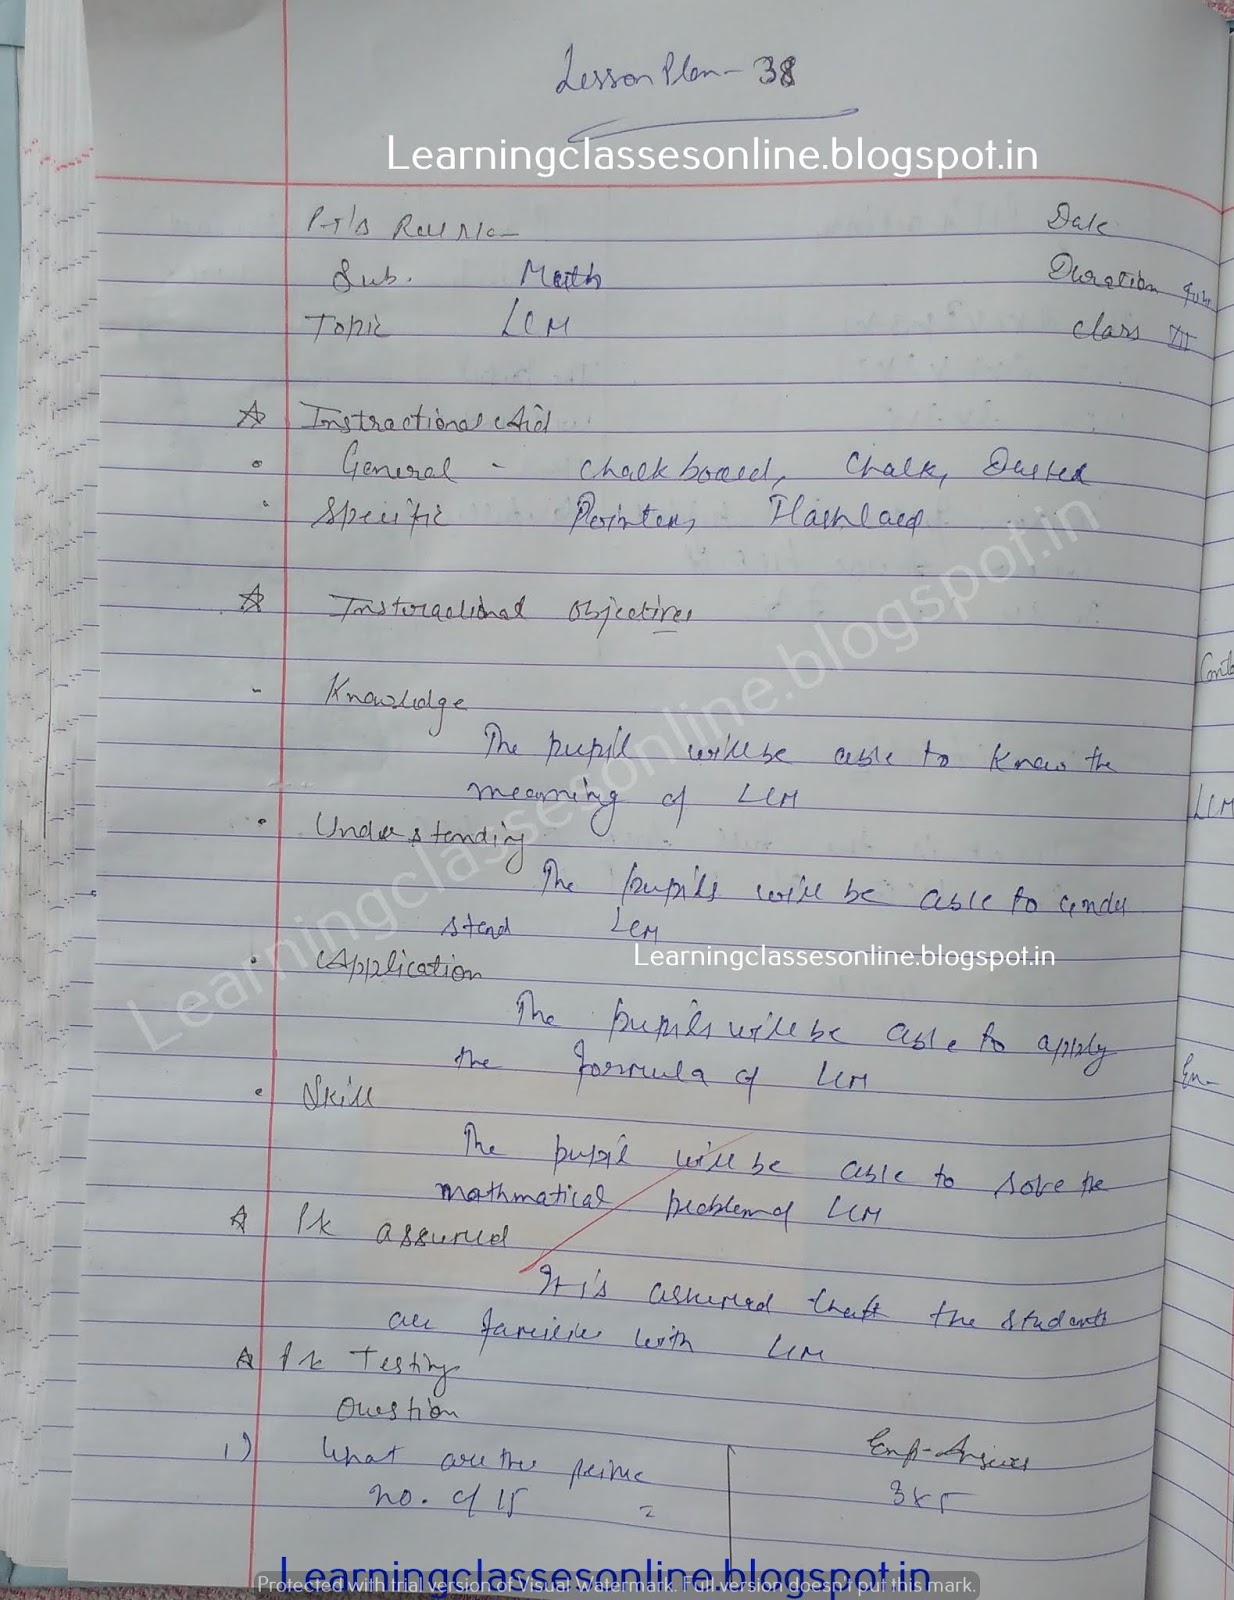 Lesson Plan - 38
Learningclassesonline.blogspot.in
P.T's Roll No - Date
Sub. Math Duration
Topic LCM class VII
Instractional Aid
General - chalk board, chalk, Duster
Specific Pointer, Flashcard
Instractional objectives
Knowledge
The pupil will be able to know the
meaning of LCM
Understanding
The pupils will be able to under
stand LCM
Learningclassesonline.blogspot.in
Application
The pupils will be able to apply
the formula of LCM
Skill
The pupil will be able to solve the
mathmatical problem of LCM
Pk assumed
It is assumed that the students
are familiar with LCM
Pk Testing
Question
Exp-Answer
1) What are the prime 3x5
no. of 15 =
Learningclassesonline.blogspot.in
Learningclassesonline.blogspot.in
Protected with trial version of Visual Watermark. Full version doesn't put this mark.
Cont
LCM
En-